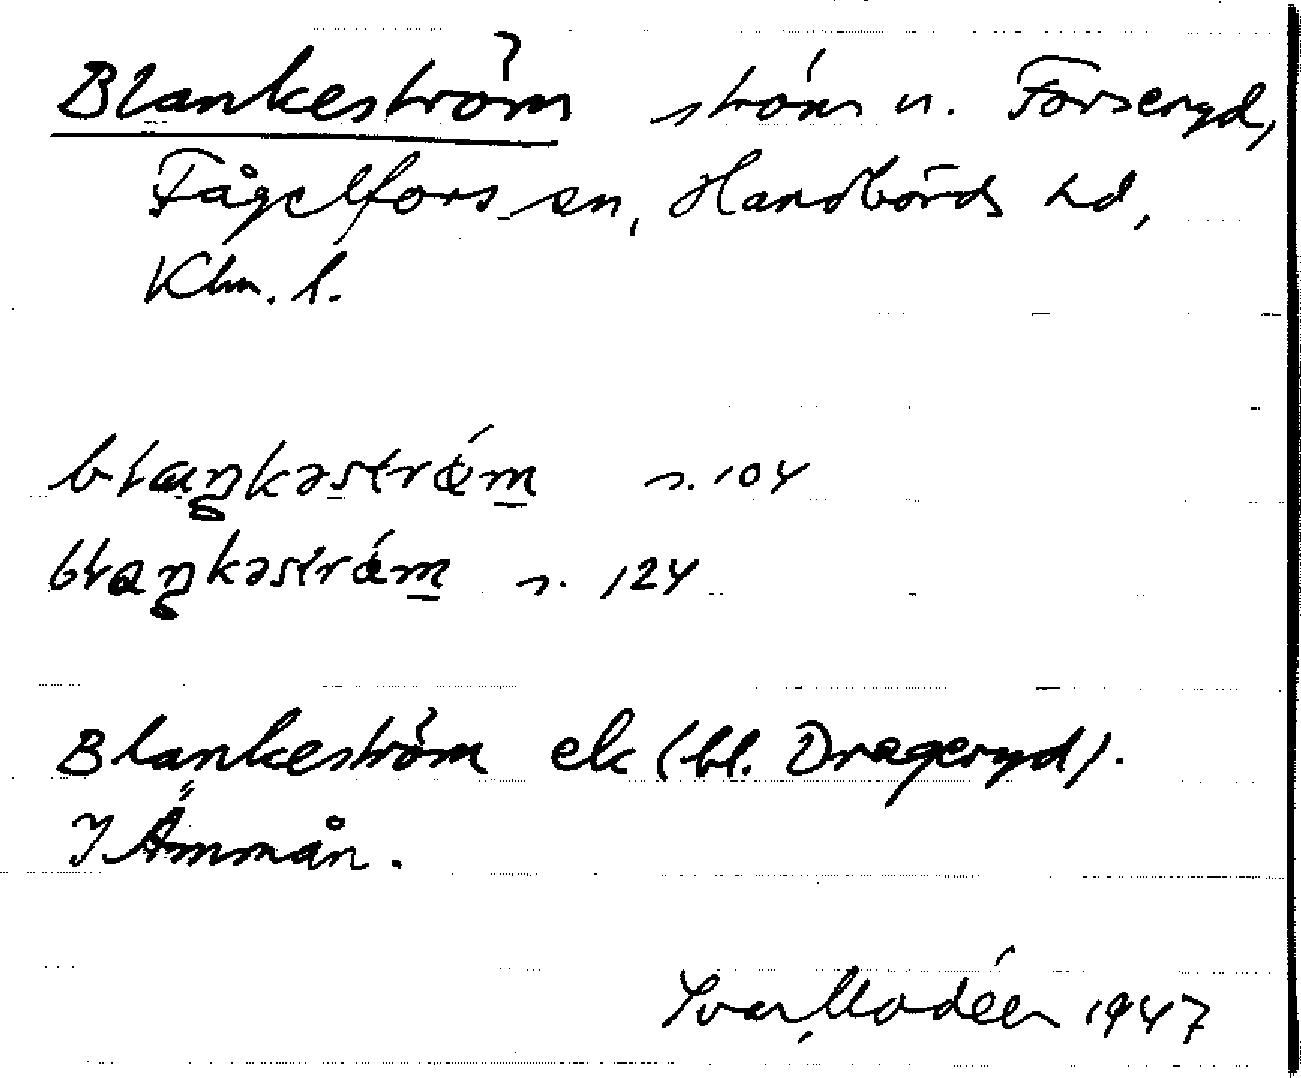 Blankeström ström n. Forseryd,
Fågelfors sn, Handbörds hd,
Klm. l.
s. 104
s. 124
Blankeström ek (bl. Drageryd).
I Ämmån.
Ivar Modéer 1947